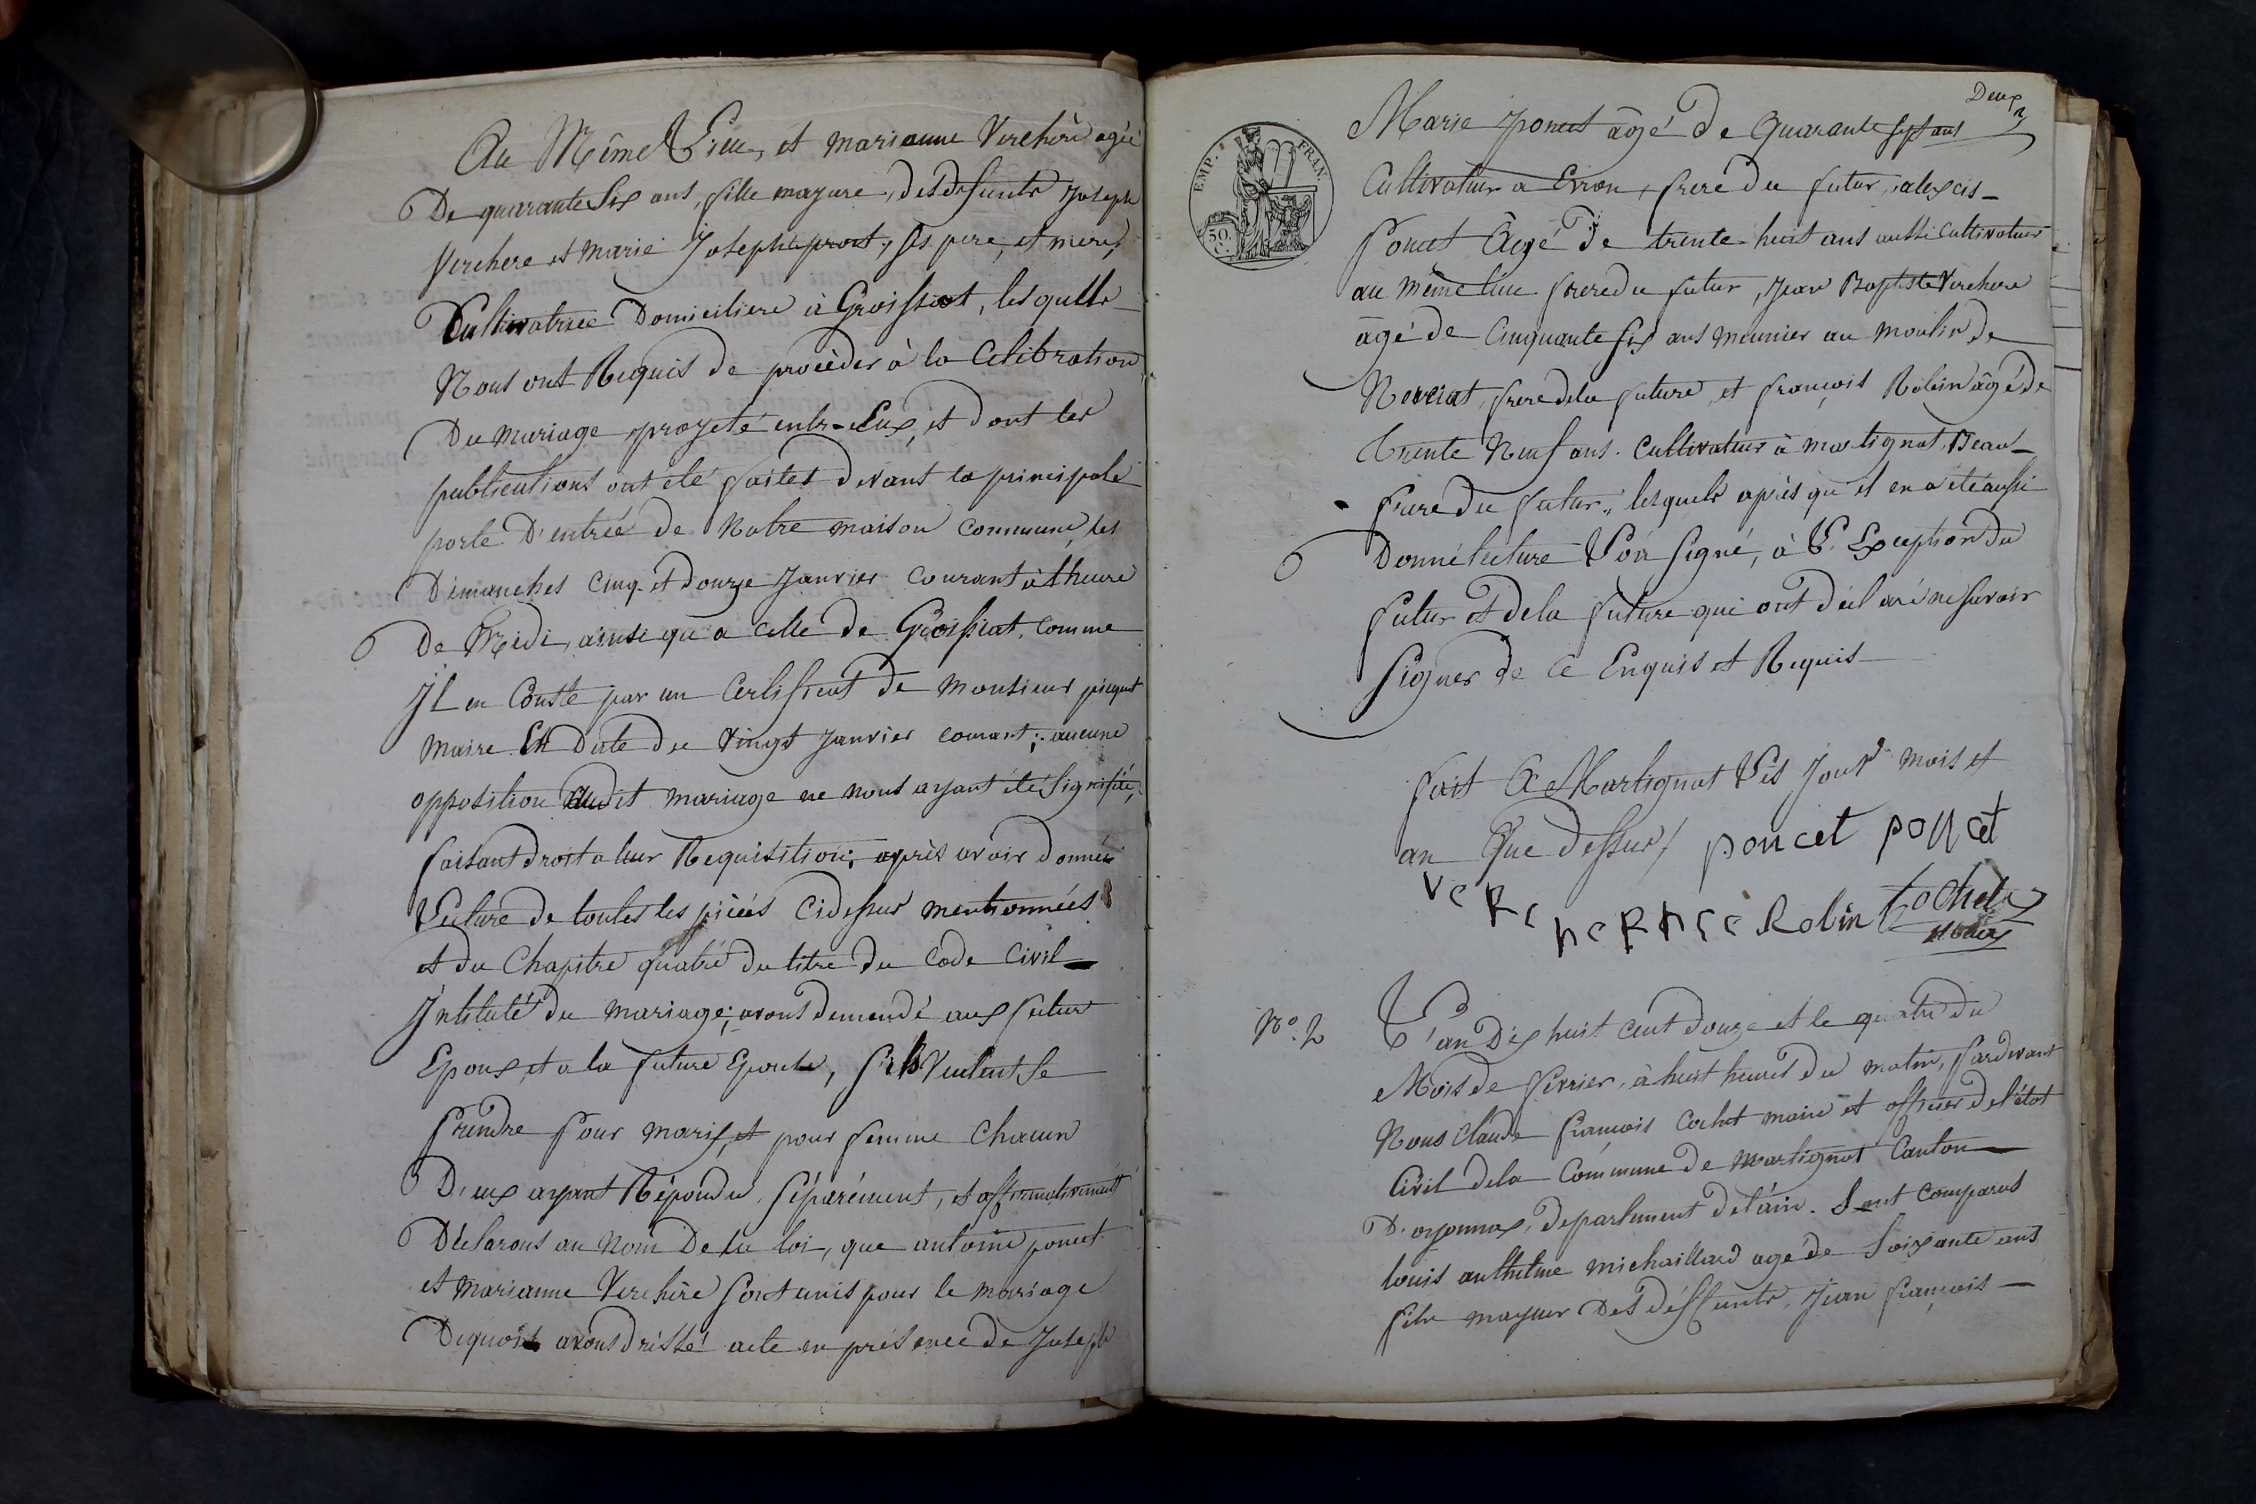 Au Même Lieu, et marianne Verchère agée
De quarante Six ans, fille majure, des defunts Joseph
Verchere et Marie Josephe prost, ses pere, et mere,
Cultivatrice Domiciliere à Groissiat, lesquells
Nous ont Requis de procèder à la Célébration
Du mariage projeté entr-Eux, et dont les
publications ont été faites devant la principale
porte D'entrée de Notre maison Commune, les
Dimanches Cinq et douze Janvier Courant à lheure
De Midi, ainsi qu'a Celle de Groissiat, Comme
Jl en Conste par un Certificat de Monsieur piquet
Maire En Date du Vingt Janvier courant; aucune
opposition Audit mariage ne nous ayant été Signifiée,
faisant droit a leur Requisition; après avoir donnée
Lecture de toutes les piéces Cidessus mentionnées
et du Chapitre quatre du titre du Code Civil
Jntitulé du mariage; avons demandé aux futur
Epoux, et a la future Epouse, s'ils Veulent se
Prendre Pour Mari, et pour femme Chacun
D'eux ayant Répondu Séparément, et affirmativement
Déclarons au Nom De la loi, que antoine poncet
et Marianne Verchère Sont unis pour le Mariage
Dequoi avons dressé acte en présence de Joseph
Deux
2
EMP. FRAN.
50
C.
Marie poncet âgé De Quarante sept ans
Cultivateur a Evron, frere du futur, alexcis
Poncet Agé De trente-huit ans aussi Cultivateur
au même lieu frere du futur, Jean Baptiste Verchere
âgé de Cinquante six ans meunier au moulin de
Nerciat, frere dela future, et françois Robin âgé de
Trente Neuf ans. Cultivateur à martignat, Beau-
frere du futur, lesquels après qu'il en a été aussi
Donné lecture L'on Signé, à L'Exception du
futur et dela future qui ont déclaré ne savoir
Signer de Ce Enquis et Requis
fait A Martignat Les Jour mois et
an Que dessus/ poncet poncet
Robin Cochet
Maire
N°. 2
L'an Dix huit Cent douze et le quatre du
Mois de fevrier, à huit heures du matin, Pardevant
Nous Claude françois Cochet maire et officier de l'état
Civil dela Commune de Martignat Canton
D'oyonnax, departement de l'ain. Sont Comparus
louis anthelme michaillard agé de Soixante ans
fils mayeur Des défunts, Jean françois